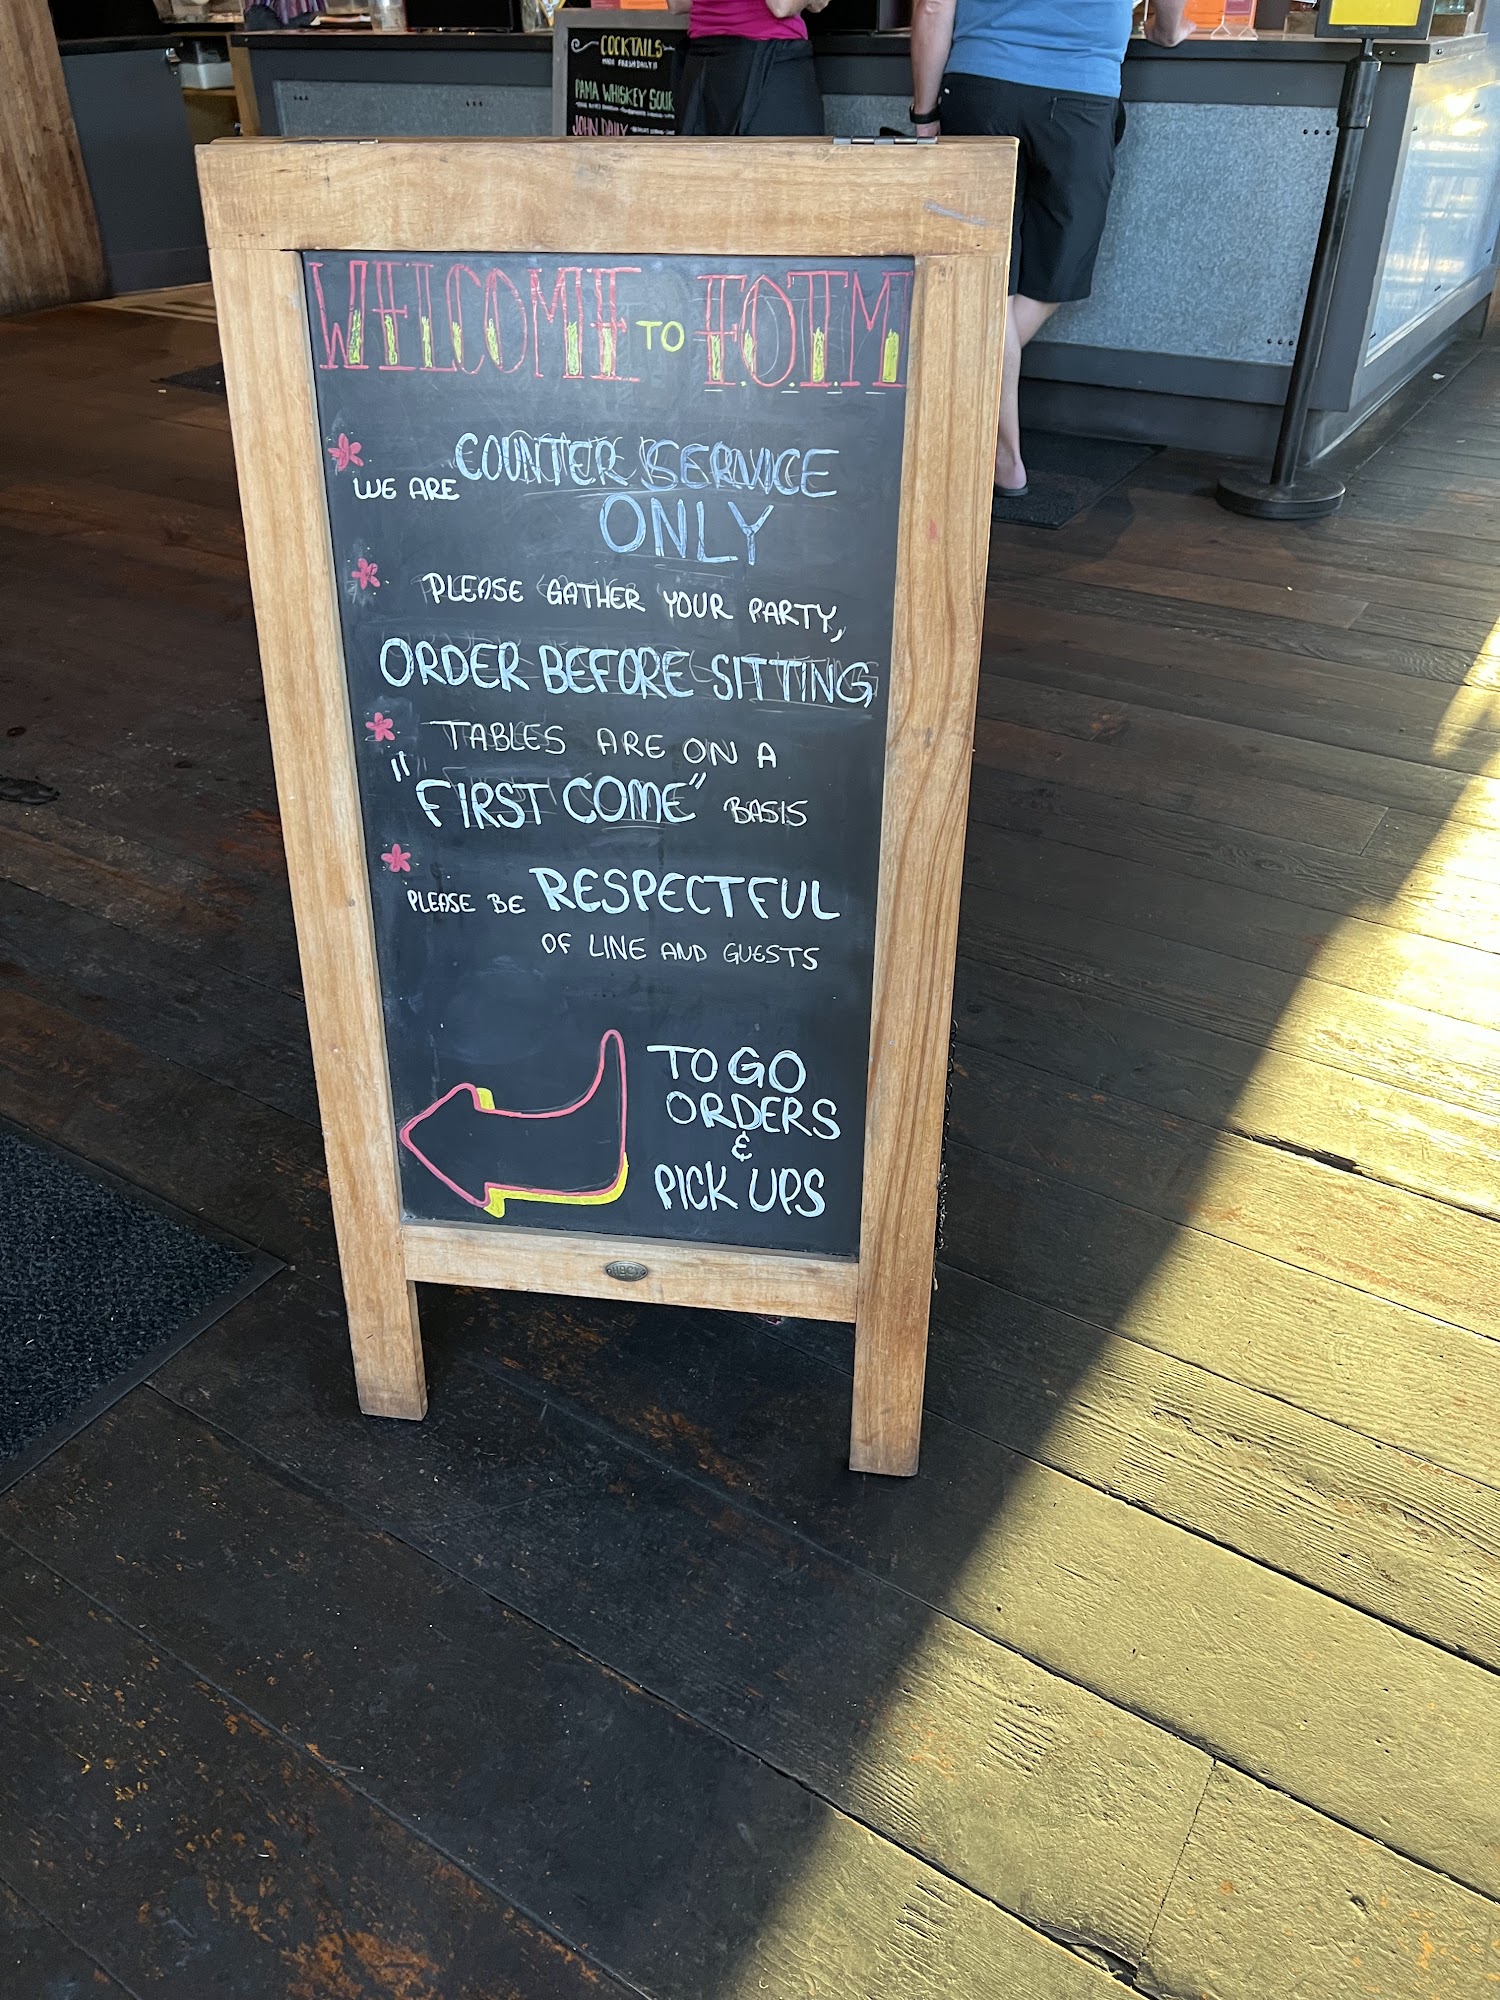 COCKTAILS
MADE FRESH DAILY!!
PAMA WHISKEY SOUR
JOHN DALY
WELCOME TO F.O.T.M
WE ARE COUNTER SERVICE
ONLY
PLEASE GATHER YOUR PARTY,
ORDER BEFORE SITTING
TABLES ARE ON A
"FIRST COME" BASIS
PLEASE BE RESPECTFUL
OF LINE AND GUESTS
TO GO
ORDERS
&
PICK UPS